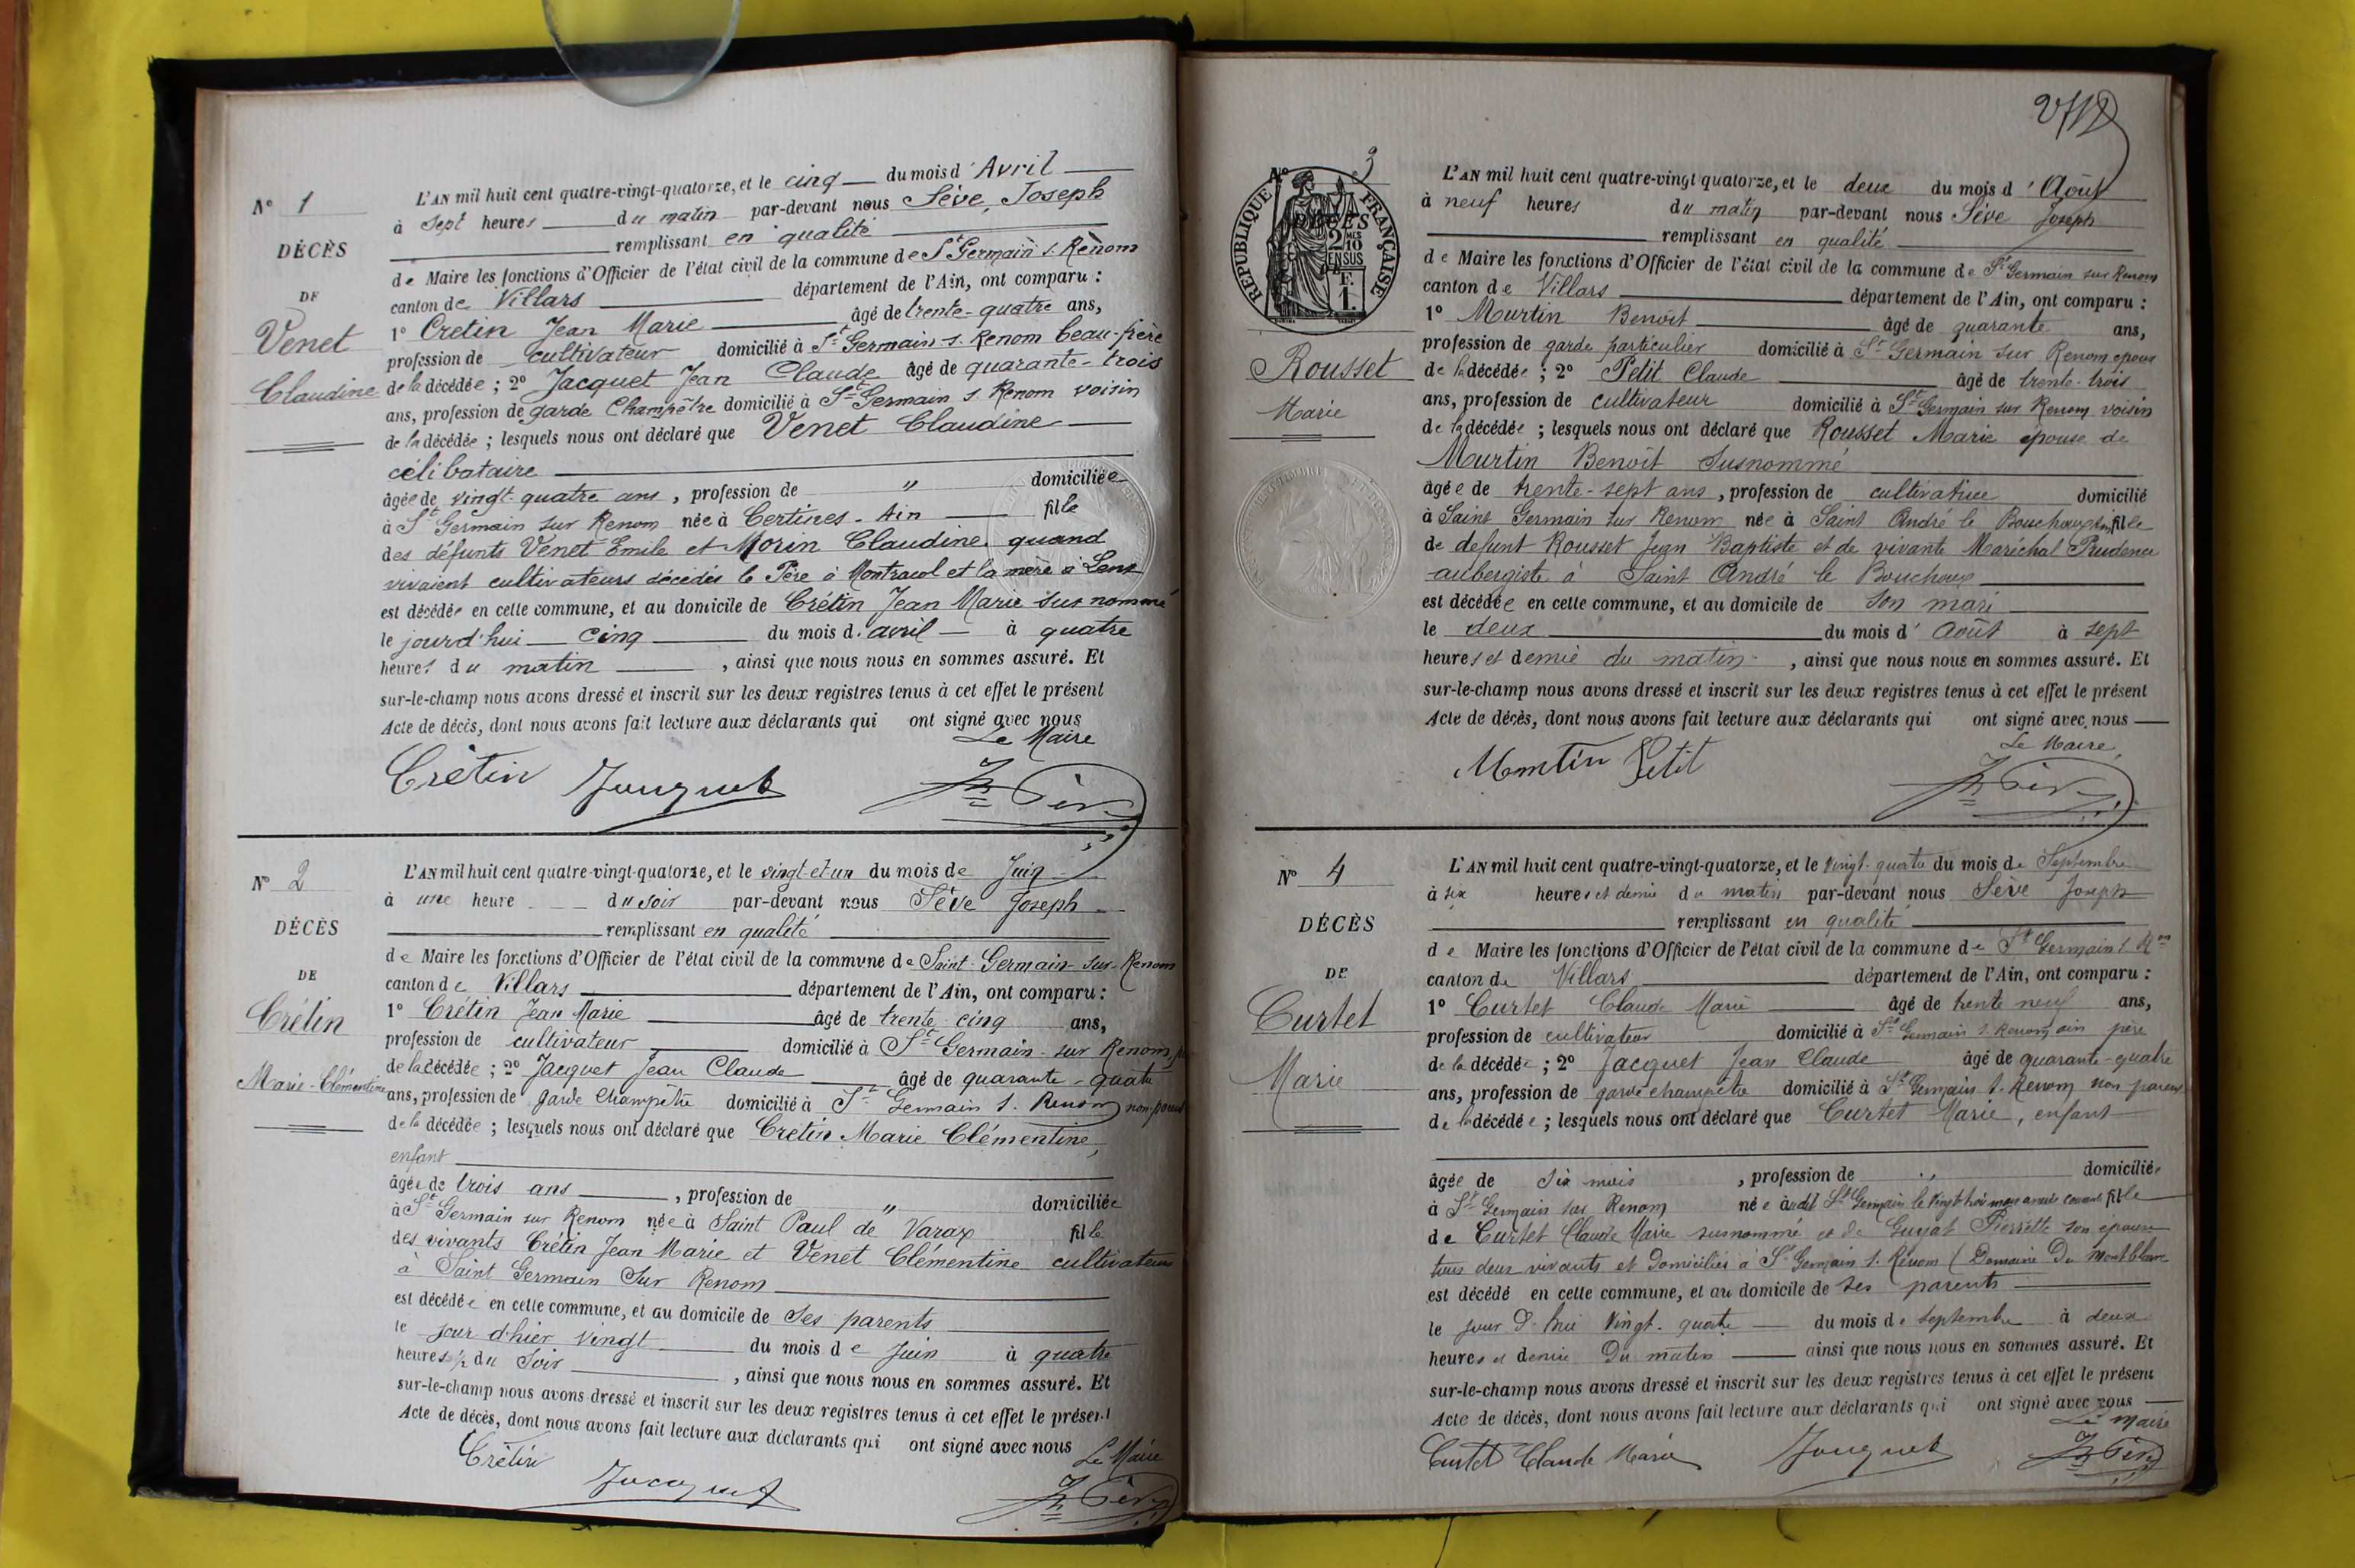 N° 1
DÉCÈS
DE
Venet
Claudine
L'AN mil huit cent quatre-vingt-quatorze, et le cinq du mois d'Avril
à sept heures du matin par-devant nous Sève, Joseph
remplissant en qualité
de Maire les fonctions d'Officier de l'état civil de la commune de St Germain s. Renom
canton de Villars département de l'Ain, ont comparu :
1° Cretin Jean Marie âgé de trente-quatre ans,
profession de cultivateur domicilié à St Germain-s. Renom beau-frère
de la décédée ; 2° Jacquet Jean Claude âgé de quarante-trois
ans, profession de garde Champêtre domicilié à St Germain s. Renom voisin
de la décédée ; lesquels nous ont déclaré que Venet Claudine
célibataire
âgée de vingt-quatre ans, profession de " domiciliée
à St Germain sur Renom née à Certines - Ain fille
des défunts Venet Emile et Morin Claudine quand
vivaient cultivateurs décédés le Père à Montracol et la mère à Lent
est décédée en cette commune, et au domicile de Crétin Jean Marie sus nommé
le jourd'hui cinq du mois d'avril à quatre
heures du matin, ainsi que nous nous en sommes assuré. Et
sur-le-champ nous avons dressé et inscrit sur les deux registres tenus à cet effet le présent
Acte de décès, dont nous avons fait lecture aux déclarants qui ont signé avec nous
Le Maire
Crétin Jacquet Jh Sève
N° 2
DÉCÈS
DE
Crétin
Marie-Clémentine
L'AN mil huit cent quatre-vingt-quatorze, et le vingt-et-un du mois de Juin
à une heure du soir par-devant nous Sève Joseph
remplissant en qualité
de Maire les fonctions d'Officier de l'état civil de la commune de Saint-Germain-sur-Renom
canton de Villars département de l'Ain, ont comparu :
1° Crétin Jean Marie âgé de trente cinq ans,
profession de cultivateur domicilié à St Germain-sur Renom
de la décédée ; 2° Jacquet Jean Claude âgé de quarante-quatre
ans, profession de garde Champêtre domicilié à St Germain s. Renom non parent
de la décédée ; lesquels nous ont déclaré que Crétin Marie Clémentine,
enfant
âgée de trois ans, profession de " domiciliée
à St Germain sur Renom née à Saint Paul de Varax fille
des vivants Crétin Jean Marie et Venet Clémentine cultivateurs
à Saint Germain Sur Renom
est décédée en cette commune, et au domicile de Ses parents
le jour d'hier vingt du mois de Juin à quatre
heures ½ du Soir, ainsi que nous nous en sommes assuré. Et
sur-le-champ nous avons dressé et inscrit sur les deux registres tenus à cet effet le présent
Acte de décès, dont nous avons fait lecture aux déclarants qui ont signé avec nous
Le Maire
Crétin Jacquet Jh Sève
N° 3
RÉPUBLIQUE FRANÇAISE
DÉCÈS
2/10 EN SUS
F. 1.
Rousset
Marie
L'AN mil huit cent quatre-vingt-quatorze, et le deux du mois d'Août
à neuf heures du matin par-devant nous Sève Joseph
remplissant en qualité
de Maire les fonctions d'Officier de l'état civil de la commune de St Germain sur Renom
canton de Villars département de l'Ain, ont comparu :
1° Murtin Benoît âgé de quarante ans,
profession de garde particulier domicilié à St Germain sur Renom époux
de la décédée ; 2° Petit Claude âgé de trente-trois
ans, profession de cultivateur domicilié à St Germain sur Renom voisin
de la décédée ; lesquels nous ont déclaré que Rousset Marie épouse de
Murtin Benoît susnommé
âgée de trente-sept ans, profession de cultivatrice domicilié
à Saint Germain sur Renom née à Saint André le Bouchoux fille
de defunt Rousset Jean Baptiste et de vivante Maréchal Prudence
aubergiste à Saint André le Bouchoux
est décédée en cette commune, et au domicile de son mari
le deux du mois d'Août à sept
heures et demie du matin, ainsi que nous nous en sommes assuré. Et
sur-le-champ nous avons dressé et inscrit sur les deux registres tenus à cet effet le présent
Acte de décès, dont nous avons fait lecture aux déclarants qui ont signé avec nous
Le Maire
Murtin Petit Jh Sève
N° 4
DÉCÈS
DE
Curtet
Marie
L'AN mil huit cent quatre-vingt-quatorze, et le vingt-quatre du mois de Septembre
à six heures et demie du matin par-devant nous Sève Joseph
remplissant en qualité
de Maire les fonctions d'Officier de l'état civil de la commune de St Germain s. Rom
canton de Villars département de l'Ain, ont comparu :
1° Curtet Claude Marie âgé de trente neuf ans,
profession de cultivateur domicilié à St Germain s. Renom, ain père
de la décédée ; 2° Jacquet Jean Claude âgé de quarante-quatre
ans, profession de garde champêtre domicilié à St Germain s. Renom non parent
de la décédée ; lesquels nous ont déclaré que Curtet Marie, enfant
âgée de six mois, profession de " domiciliée
à St Germain sur Renom née audit St Germain le vingt-trois mars année courante fille
de Curtet Claude Marie susnommé et de Guyat Pierrette son épouse
tous deux vivants et domiciliés à St Germain s. Renom (Domaine Du Montblanc
est décédé en cette commune, et au domicile de ses parents
le jour d'hui vingt-quatre du mois de septembre à deux
heures et demie Du matin ainsi que nous nous en sommes assuré. Et
sur-le-champ nous avons dressé et inscrit sur les deux registres tenus à cet effet le présent
Acte de décès, dont nous avons fait lecture aux déclarants qui ont signé avec nous
Le Maire
Curtet Claude Marie Jacquet Jh Sève